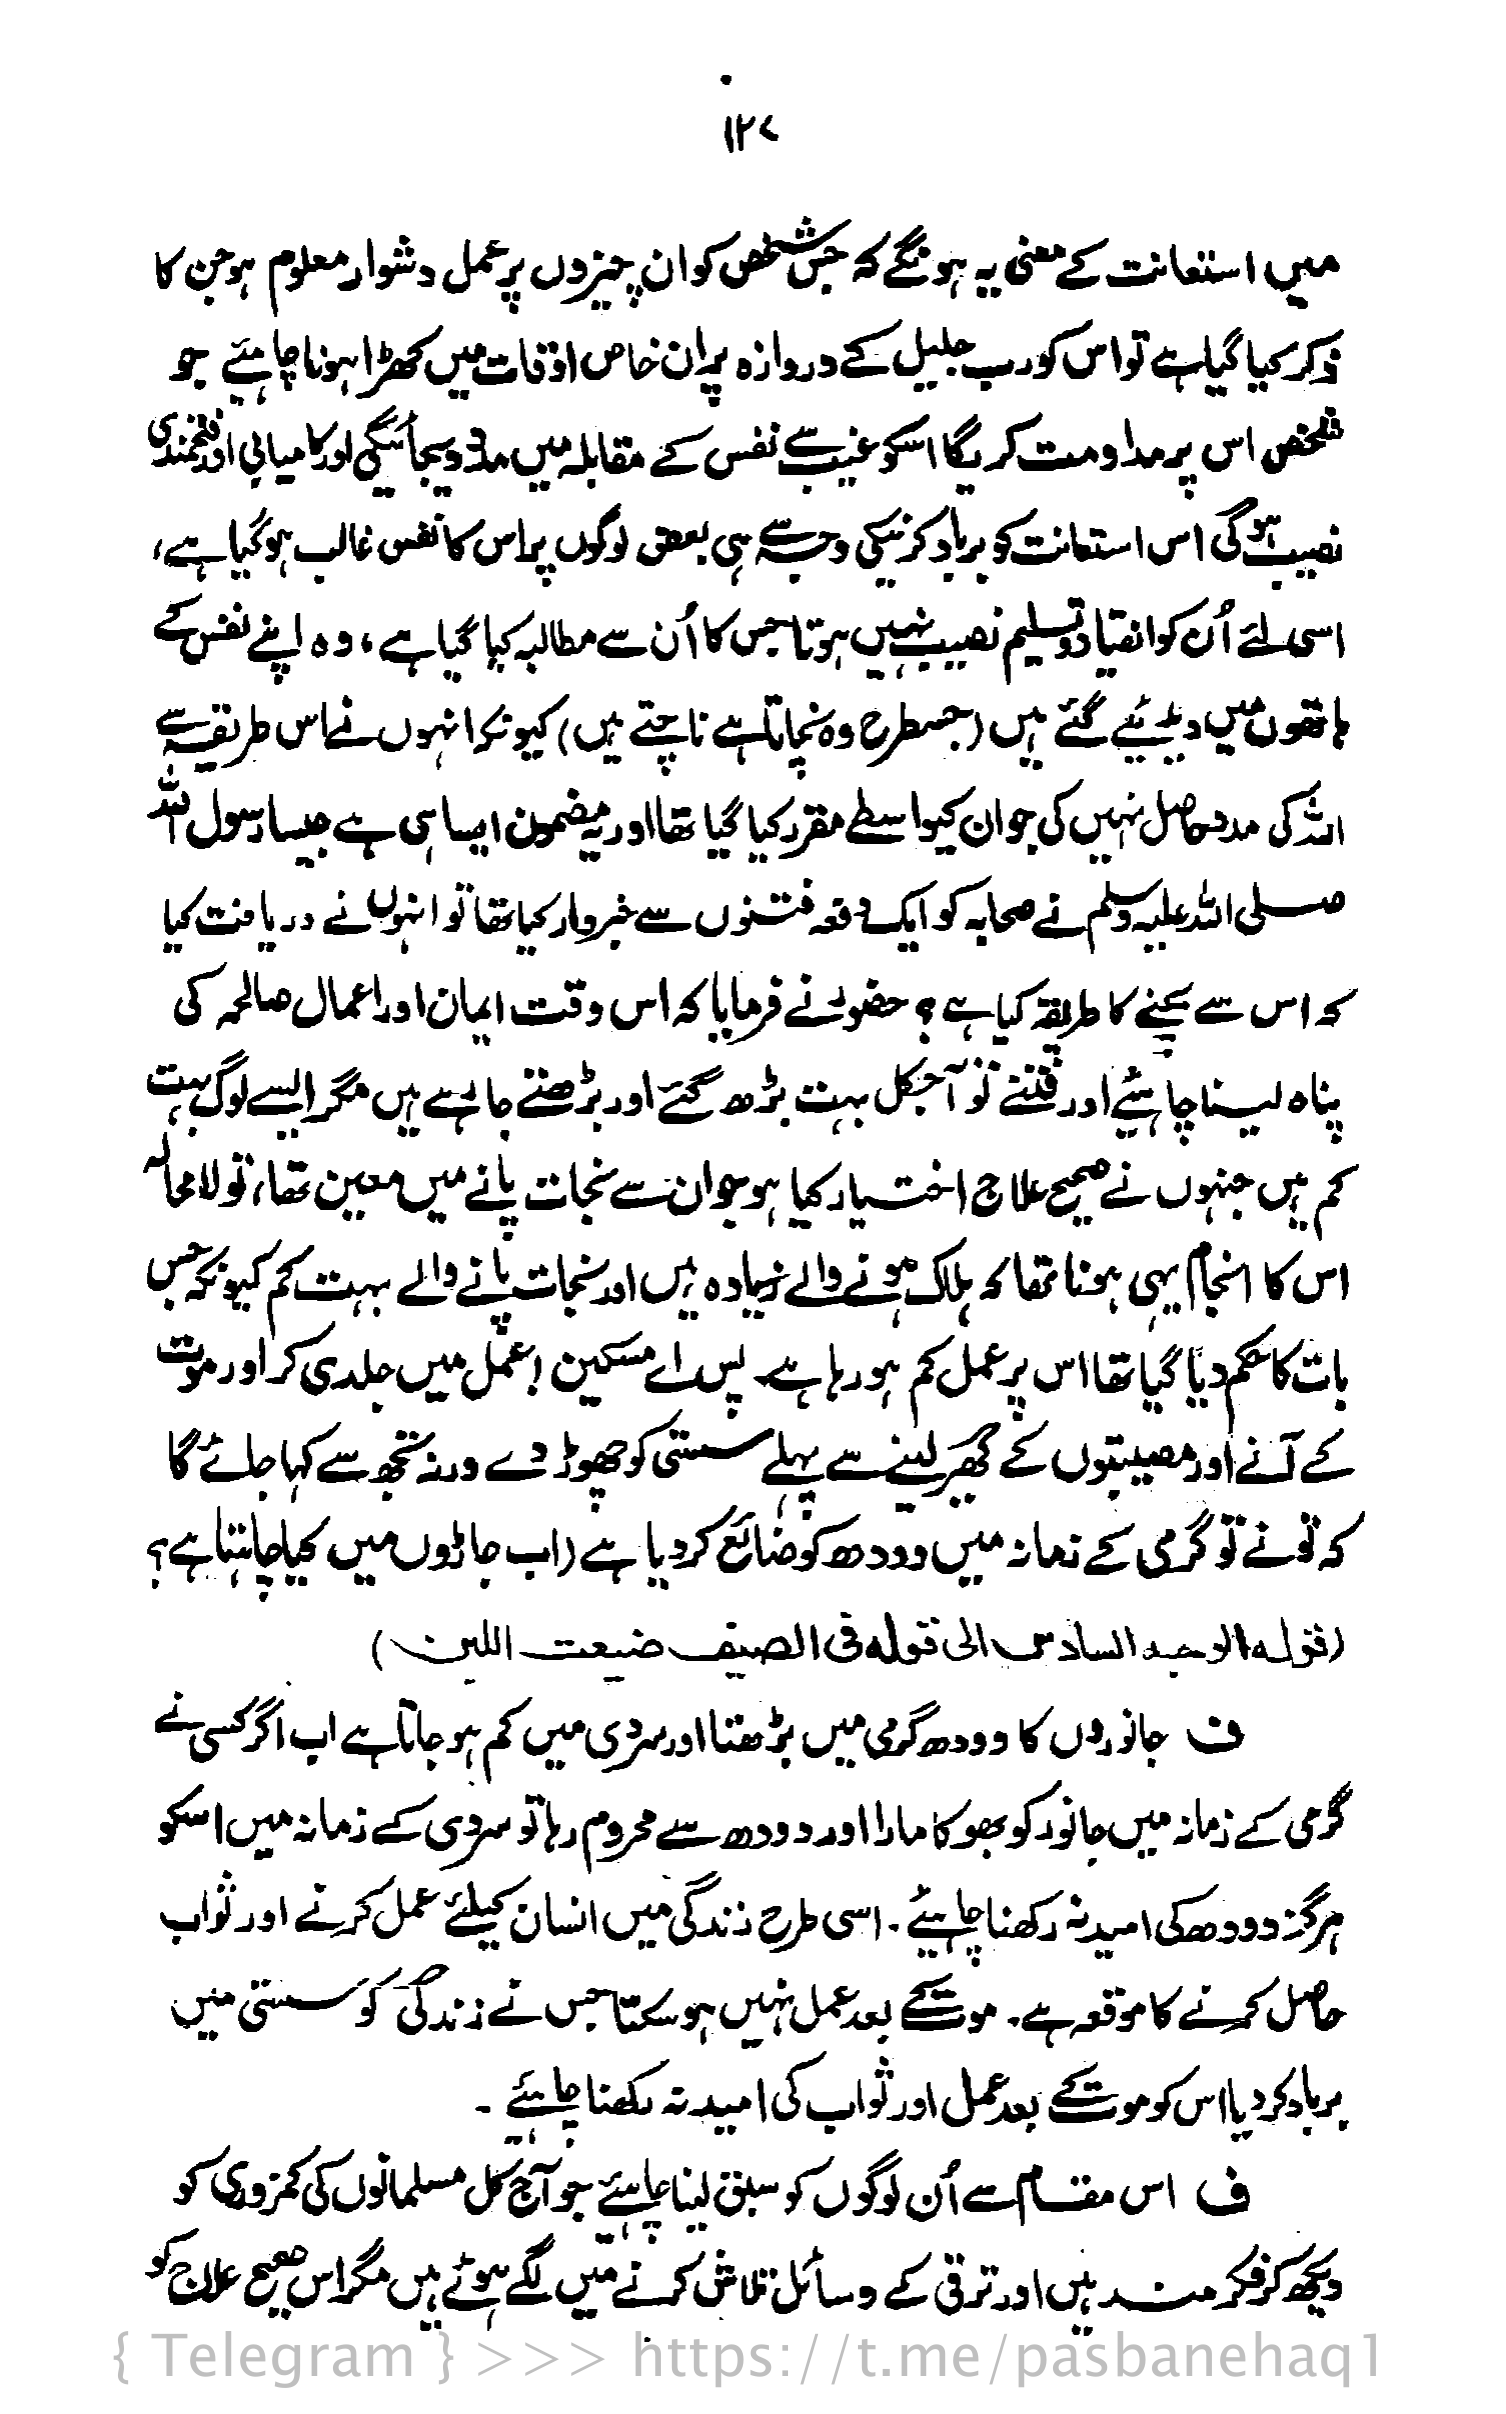 ۱۲۷
میں استعانت کے معنی یہ ہونگے کہ جس شخص کو ان چیزوں پر عمل دشوار معلوم ہو جن کا
ذکر کیا گیا ہے تو اس کو رب جلیل کے دروازہ پر ان خاص اوقات میں کھڑا ہونا چاہئیے جو
شخص اس پر مداومت کریگا اسکو غیب سے نفس کے مقابلہ میں مدد دیجائیگی اور کامیابی اور فتحمندی
نصیب ہو گی اس استعانت کو برباد کرنیکی وجہ سے ہی بعض لوگوں پر اس کا نفس غالب ہو گیا ہے،
اسی لئے اُن کو انقیاد و تسلیم نصیب نہیں ہوتا جس کا اُن سے مطالبہ کیا گیا ہے، وہ اپنے نفس کے
ہاتھوں میں دیدیئے گئے ہیں (جسطرح وہ نچاتا ہے ناچتے ہیں) کیونکہ انہوں نے اس طریقہ سے
اللہ کی مدد حاصل نہیں کی جو ان کیواسطے مقرر کیا گیا تھا اور یہ مضمون ایسا ہی ہے جیسا رسول اللہ
صلی اللہ علیہ وسلم نے صحابہ کو ایک دفعہ فتنوں سے خبردار کیا تھا تو انہوں نے دریافت کیا
کہ اس سے بچنے کا طریقہ کیا ہے؟ حضورؐ نے فرمایا کہ اس وقت ایمان اور اعمال صالحہ کی
پناہ لینا چاہئیے اور فتنے تو آجکل بہت بڑھ گئے اور بڑھتے جا رہے ہیں مگر ایسے لوگ بہت
کم ہیں جنہوں نے صحیح علاج اختیار کیا ہو جو ان سے نجات پانے میں معین تھا، تو لامحالہ
اس کا انجام یہی ہونا تھا کہ ہلاک ہونے والے زیادہ ہیں اور نجات پانے والے بہت کم کیونکہ جس
بات کا حکم دیا گیا تھا اس پر عمل کم ہو رہا ہے۔ پس اے مسکین! عمل میں جلدی کر اور موت
کے آنے اور مصیبتوں کے گھیر لینے سے پہلے سستی کو چھوڑ دے ورنہ تجھ سے کہا جائے گا
کہ تو نے تو گرمی کے زمانہ میں دودھ کو ضائع کر دیا ہے (اب جاڑوں میں کیا چاہتا ہے؟
(قولہ الوجہ السادس الی قولہ فی الصیف ضیعت اللبن)
ف جانوروں کا دودھ گرمی میں بڑھتا اور سردی میں کم ہو جاتا ہے اب اگر کسی نے
گرمی کے زمانہ میں جانور کو بھوکا مارا اور دودھ سے محروم رہا تو سردی کے زمانہ میں اسکو
ہرگز دودھ کی امید نہ رکھنا چاہئیے۔ اسی طرح زندگی میں انسان کیلئے عمل کرنے اور ثواب
حاصل کرنے کا موقعہ ہے۔ موت کے بعد عمل نہیں ہو سکتا جس نے زندگی کو سستی میں
برباد کر دیا اس کو موت کے بعد عمل اور ثواب کی امید نہ رکھنا چاہئیے۔
ف اس مقام سے اُن لوگوں کو سبق لینا چاہئیے جو آج کل مسلمانوں کی کمزوری کو
دیکھ کر فکر مند ہیں اور ترقی کے وسائل تلاش کرنے میں لگے ہوئے ہیں مگر اس صحیح علاج کو
{ Telegram } >>> https://t.me/pasbanehaq1